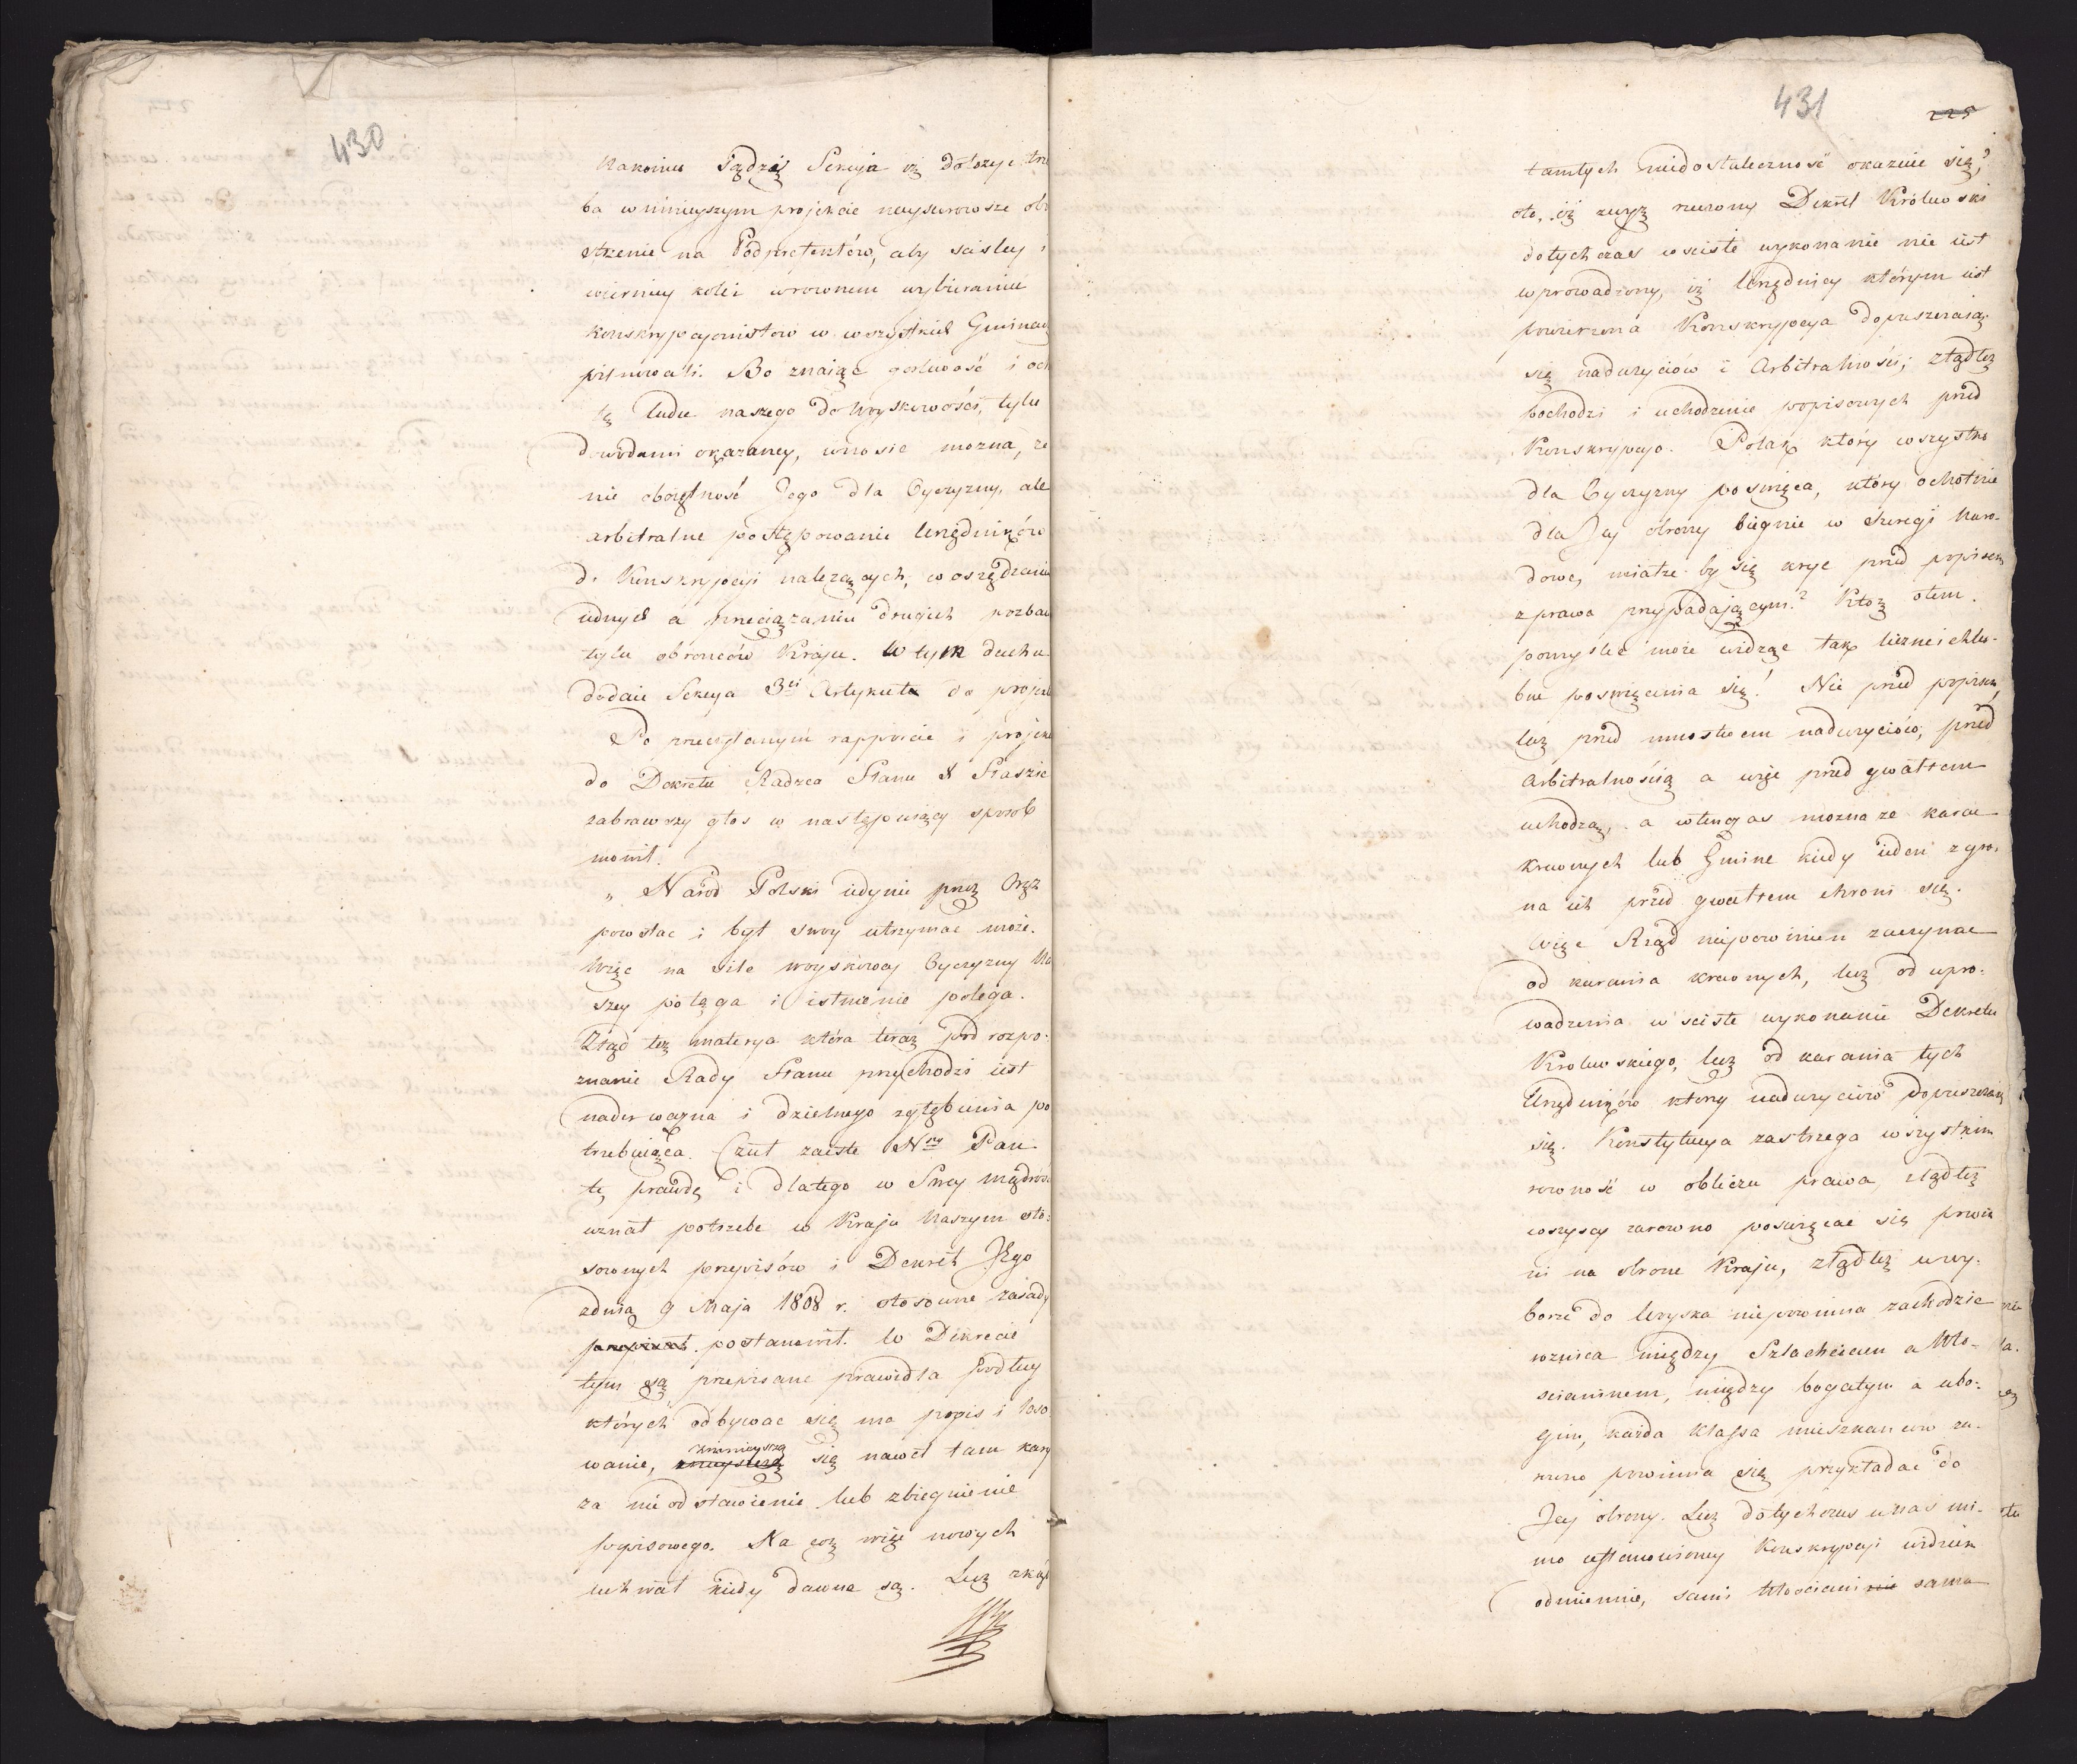 430
Nakoniec Sądzi Sekcya iż dołożyć trze
ba w ninieyszym projekcie naysurowsze ob
strzenie na Podprefektów, aby scisley i
wierniey kolei w rownem wybieraniu
Konskrypcyonistow w wszystkich Gminach
pilnowali. Bo znaiąc gorliwość i ocho
tę ludu naszego do Woyskowości, tylu
dowodami okazaney, wnosić mozna, ze
nie oboiętność Jego dla Oyczyzny, ale
arbitralne postępowanie Urzędników
do Konskrypcyi nalezących, w oszczędzaniu
iednych a przeciązaniu drugich pozbaw
tylu obrońców Kraju. W tym duchu
dodaie Sekcya 3ci Artykuł do projek
Po przeczytanym rapporcie i projek
do Dekretu Radzca Stanu X Staszic
zabrawszy głos w następuiący sposob
mowił.
„ Naród Polski iedynie przez Oręż
powstać i byt swoy utrzymać może.
Więc na sile woyskowey Oyczyzny Na
szey potęga i istnienie polega.
Ztąd też materya która teraz pod rozpo-
znanie Rady Stanu przychodzi iest
nader ważna i dzielnego zgłębienia po
trzebuiąca. Czuł zaiste Nny Pan
tę prawdę i dlatego w Swey mądrości
uznał potrzebę w Kraju Naszym sto-
sownych przepisów i Dekret Jego
z dnia 9 Maja 1808 r. stosowne zasady
przepisał. postanowił. W Dekrecie
tym są przepisane prawidła podług
których odbywać się ma popis i loso
wanie, zmnieysza
się nawet tam kary
za nie odstawienie lub zbiegnienie
popisowego. Na coz więc nowych
uchwał kiedy dawne są. Lecz zkąd
431
225
tamtych niedostateczność okazuie się?
oto, iż wyż rzeczony Dekret Królewski
dotychczas w scisłe wykonanie nie iest
wprowadzony, iż Urzędnicy którym iest
powierzona Konskrypcya dopuszczaią
się nadużyciów i Arbitralności; ztądteż
pochodzi i uchodzenie popisowych przed
Konskrypcyą. Polak który wszystko
dla Oyczyzny poswięca, który ochotnie
dla Jey obrony biegnie w Szeregi Naro-
dowe, miałze by się kryć przed popisem
z prawa przypadającym? Któż otem
pomysleć może widząc tak liczne i chlu-
bne poswięcenia się! Nie przed popisem,
lecz przed mnostwem nadużyciów, przed
Arbitralnością a więc przed gwałtem
uchodzą, a wtenczas można ze karać
krewnych lub Gminę kiedy ieden z gro-
na ich przed gwałtem chroni się.
Więc Rząd niepowinien zaczynać
od karania krewnych, lecz od wpro-
wadzenia w scisłe wykonanie Dekretu
Krolewskiego, lecz od karania tych
Urzędników którzy nadużyciów dopuszczaią
się. Konstytucya zastrzega wszystkim
rowność w obliczu prawa, ztądteż
wszyscy zarowno poswięcać się powin
ni na obronę Kraju, ztądteż w wy-
borze do Woyska niepowinna zachodzić
roznica między Szlachcicem a Wło-
scianinem, między bogatym a ubo-
gim, każda Klassa mieszkancow za-
rowno powinna się przykładać do
Jey obrony. Lecz dotychczas u nas mi-
mo ustanowioney Konskrypcyi widziem
odmiennie, sami Włoscianie sama